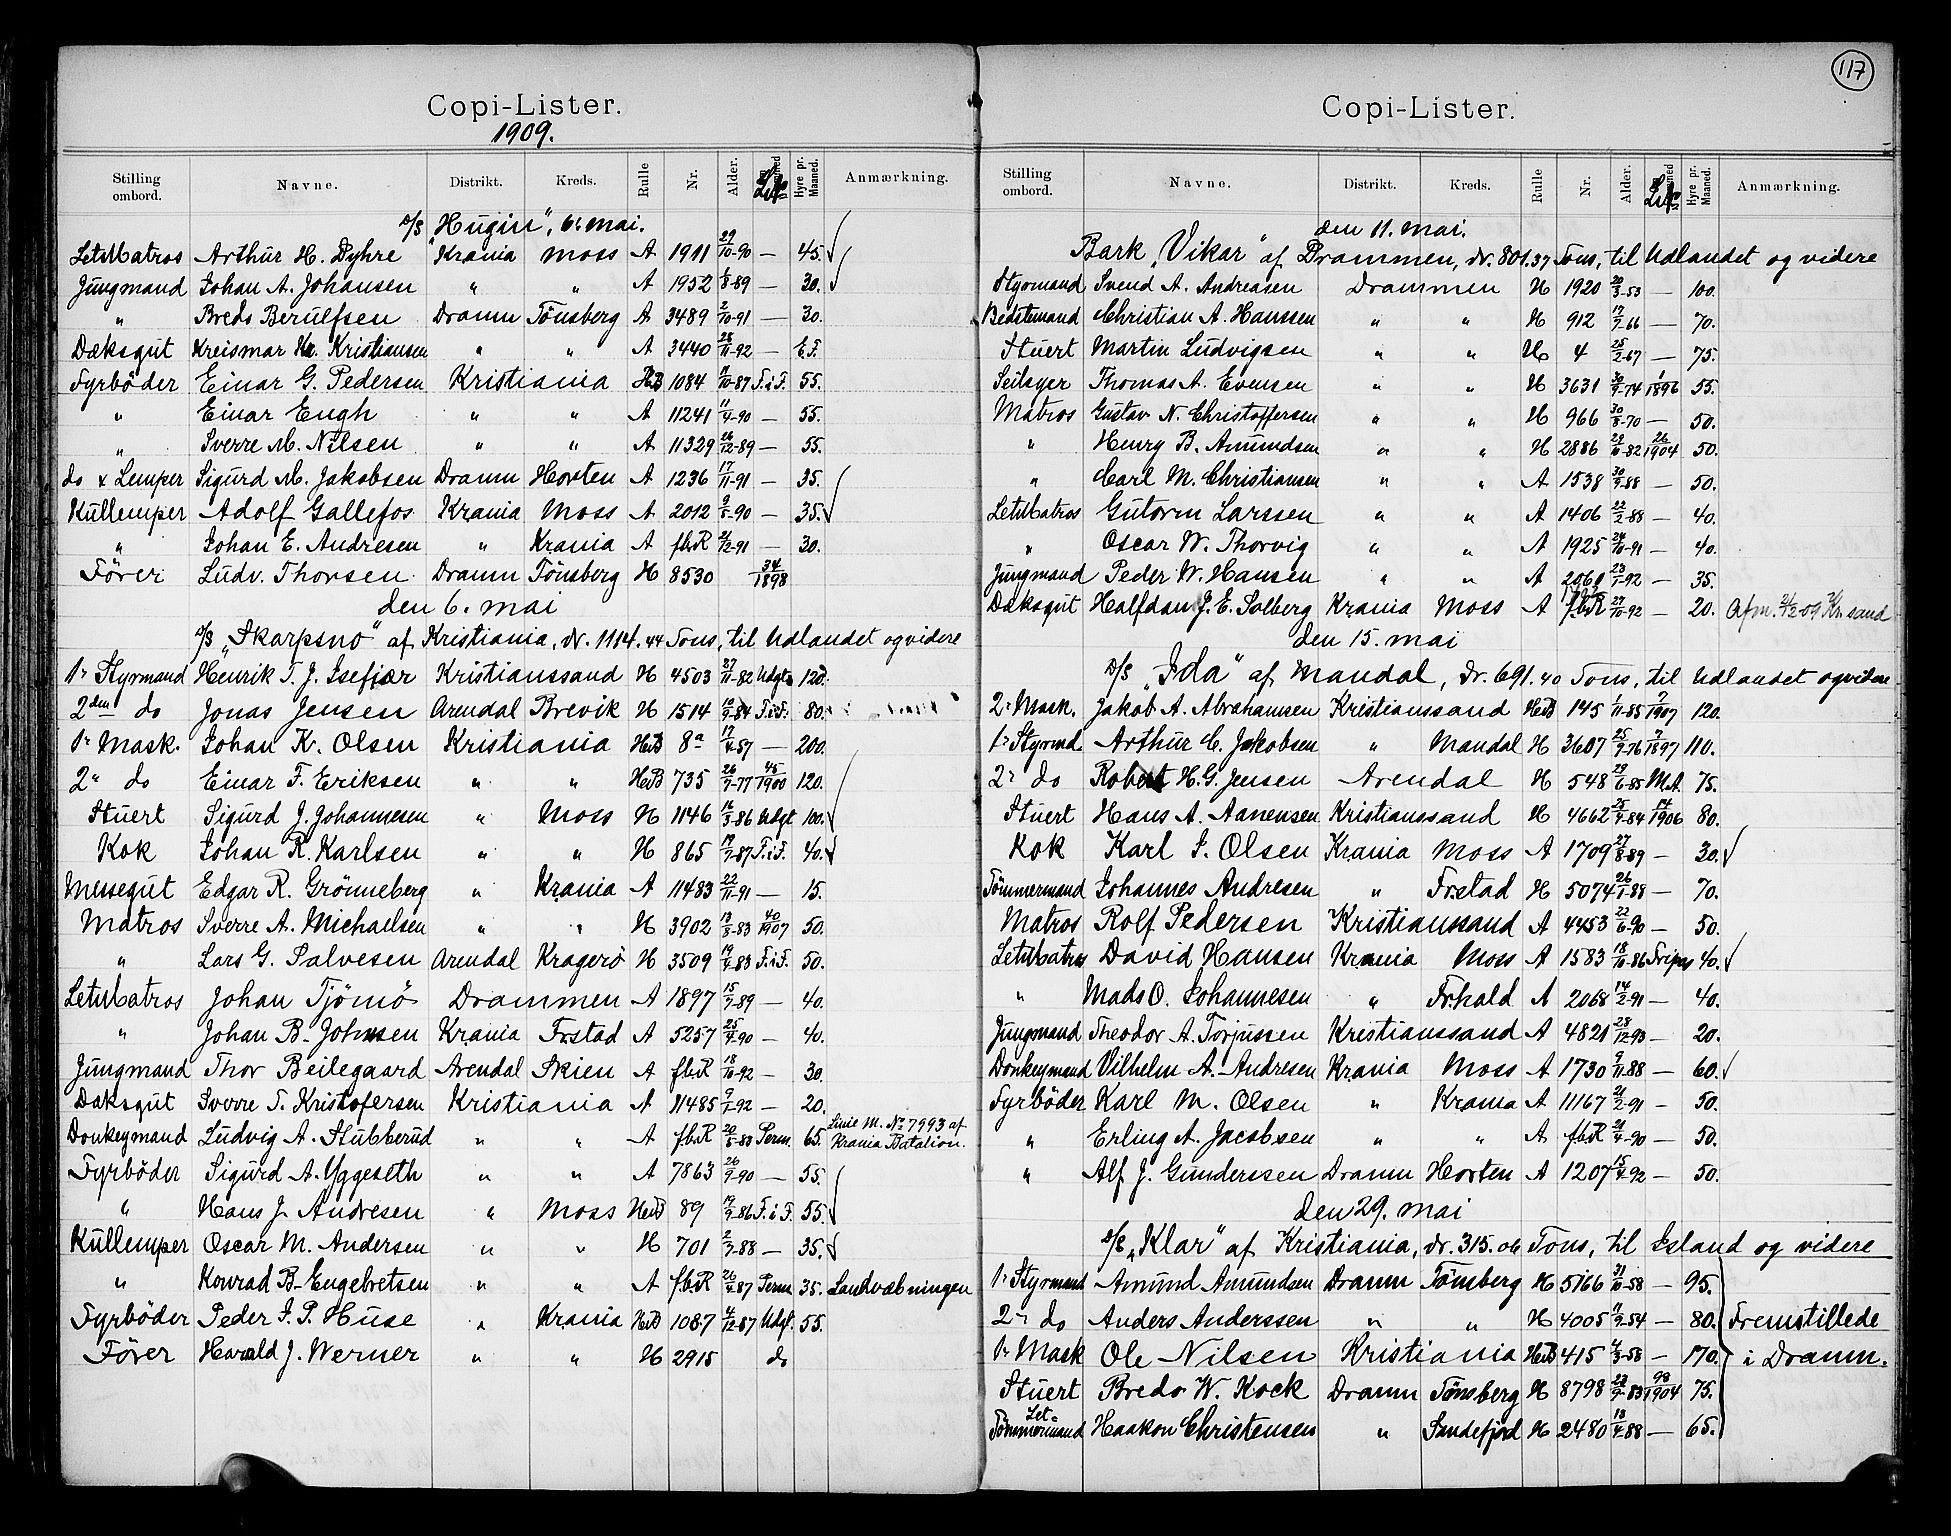 117
Copi-Lister.
1909.
Stilling ombord. Navne. Distrikt. Kreds. Rulle Nr. Alder. Hyre pr. Maaned. Anmærkning.
D/S "Hugin", 6. mai.
LetMatros Arthur H. Dyhre Krania Moss A 1911 29/10-90 — 45.
Jungmand Johan A. Johansen " " A 1952 6/8-89 — 30.
" Breds Berulfsen Dramn Tönsberg A 3489 2/10-91 — 30.
Dæksgut Kreismar Kristiansen " " A 3440 28/11-92 —
Fyrböder Einar G. Pedersen Kristiania HeB 1084 11/10-87 F.i.F. 55.
" Einar Engh " " A 11241 11/4-90 — 55.
" Sverre M. Nilsen " " A 11329 26/12-89 — 55.
do & Lemper Sigurd M. Jakobsen Dramn Horten A 1236 17/11-91 — 35.
Kullemper Adolf Gallefos Krania Moss A 2012 9/5-90 — 35.
" Johan E. Andresen " Krania A fbR 21/12-91 — 30.
Förer Ludv. Thorsen Dramn Tönsberg H 8530 34/1898
den 6. mai
D/S "Skarpsno" af Kristiania, Dr. 1114.44 Tons, til Udlandet og videre
1r Styrmand Henrik T. J. Isefjær Kristianssand H 4503 27/11-82 Udgt. 120.
2den do Jonas Jensen Arendal Brevik H 1514 10/9-84 F.i.F. 80.
1r Mask. Johan K. Olsen Kristiania HeB 8a 17/4-57 — 200.
2n do Einar F. Eriksen " " HeB 735 26/7-77 45/1900 120.
Stuert Sigurd J. Johannesen " Moss H 1146 16/3-86 Udgt 100.
Kok Johan R. Karlsen " " H 865 19/7-87 F.i.F. 40.
Messegut Edgar R. Grönneberg " Krania A 11483 22/11-91 — 15.
Matros Sverre A. Michaelsen " " H 3902 13/5-83 40/1907 50.
" Lars G. Salvesen Arendal Kragerö H 3509 19/4-83 F.i.F. 50.
LetMatros Johan Tjömö Drammen A 1897 15/7-89 — 40.
" Johan B. Johnsen Krania Frstad A 5257 25/4-90 — 40.
Jungmand Thor Beilegaard Arendal Skien A fbR 18/10-92 — 30.
Daksgut Sverre T. Kristofersen Kristiania A 11485 9/1-92 — 20.
Donkeymand Ludvig A. Stubberud " " A fbR 20/5-83 Perm. 65. Linie M. No 7993 af Krania Batalion.
Fyrböder Sigurd A. Yggeseth " " A 7863 26/9-90 — 55.
" Hans J. Andresen " Moss HeB 89 19/9-86 F.i.F. 55.
Kullemper Oscar M. Andersen " " H 701 2/7-88 — 35.
" Konrad B. Engebretsen " " A fbR 26/4-87 Perm 35. Landvæbningen
Fyrböder Peder J. P. Huse " Krania HeB 1087 4/12-87 Udgt. 55.
Förer Harald J. Werner " " H 2915 do
Copi-Lister.
Stilling ombord. Navne. Distrikt. Kreds. Rulle Nr. Alder. Hyre pr. Maaned. Anmærkning.
den 11. mai.
Bark "Vikar" af Drammen, Dr. 801.37 Tons, til Udlandet og videre
Styrmand Svend A. Andreasen Drammen H 1920 20/3-53 — 100.
Bedstemand Christian A. Hanssen " " H 912 17/7-66 — 70.
Stuert Martin Ludvigsen " " H 4 25/2-67 — 75.
Seilager Thomas A. Evensen " " H 3631 30/9-74 1/1896 55.
Matros Gustav N. Christoffersen " " H 966 30/8-70 — 50.
" Henry B. Amundsen " " H 2886 29/10-82 26/1904 50.
" Carl M. Christiansen " " A 1538 30/9-88 — 50.
LetMatros Gutorm Larssen " " A 1406 22/2-88 — 40.
" Oscar W. Thorvig " " A 1925 24/10-91 — 40.
Jungmand Peder W. Hansen " " A 2061 23/1-92 — 35.
Dæksgut Halfdan J. E. Solberg Krania Moss A fbR 27/10-92 — 20. Afm. 4/2 09 Kr.sand
den 15. mai
D/S "Ida" af Mandal, Dr. 691.40 Tons, til Udlandet og videre
2r Mask. Jakob A. Abrahamsen Kristianssand HeB 145 1/11-85 7/1907 120.
1r Styrmd Arthur C. Jakobsen " Mandal H 3607 25/9-76 7/1897 110.
2r do Robert H. G. Jensen Arendal H 548 29/6-85 M.A. 75.
Stuert Hans A. Aanensen Kristianssand H 4662 25/9-84 14/1906 80.
Kok Karl S. Olsen Krania Moss A 1709 27/8-89 — 30.
Tömmermand Johannes Andresen " Frstad H 5074 26/1-88 — 70.
Matros Rolf Pedersen Kristianssand A 4453 22/6-90 — 50.
LetMatros David Hansen Krania Moss A 1583 18/10-86 Fripas 40.
" Mads O. Johannesen " Frhald A 2068 14/2-91 — 40.
Jungmand Theodor A. Torjussen Kristianssand A 4821 28/12-93 — 20.
Donkeymand Vilhelm A. Andresen Krania Moss A 1730 9/11-88 — 60.
Fyrböder Karl M. Olsen " Krania A 11167 21/2-91 — 50.
" Erling A. Jacobsen " " A fbR 21/4-90 — 50.
" Alf J. Gunderssen Dramn Horten A 1207 15/4-92 — 50.
den 29. mai
S/E "Klar" af Kristiania, Dr. 315.06 Tons, til Island og videre
1r Styrmand Amund Amundsen Dramn Tönsberg H 5166 31/10-58 — 95.
2n do Anders Anderssen " " H 4005 11/9-54 — 80. Fremstillede
1r Mask Ole Nilsen Kristiania HeB 415 4/3-58 — 170. i Dramn.
Stuert Bredo W. Kock Dramn Tönsberg H 8798 23/9-83 93/1904 75.
Let-Tömmermand Haakon Christensen " Sandefjord H 2480 13/4-88 — 65.